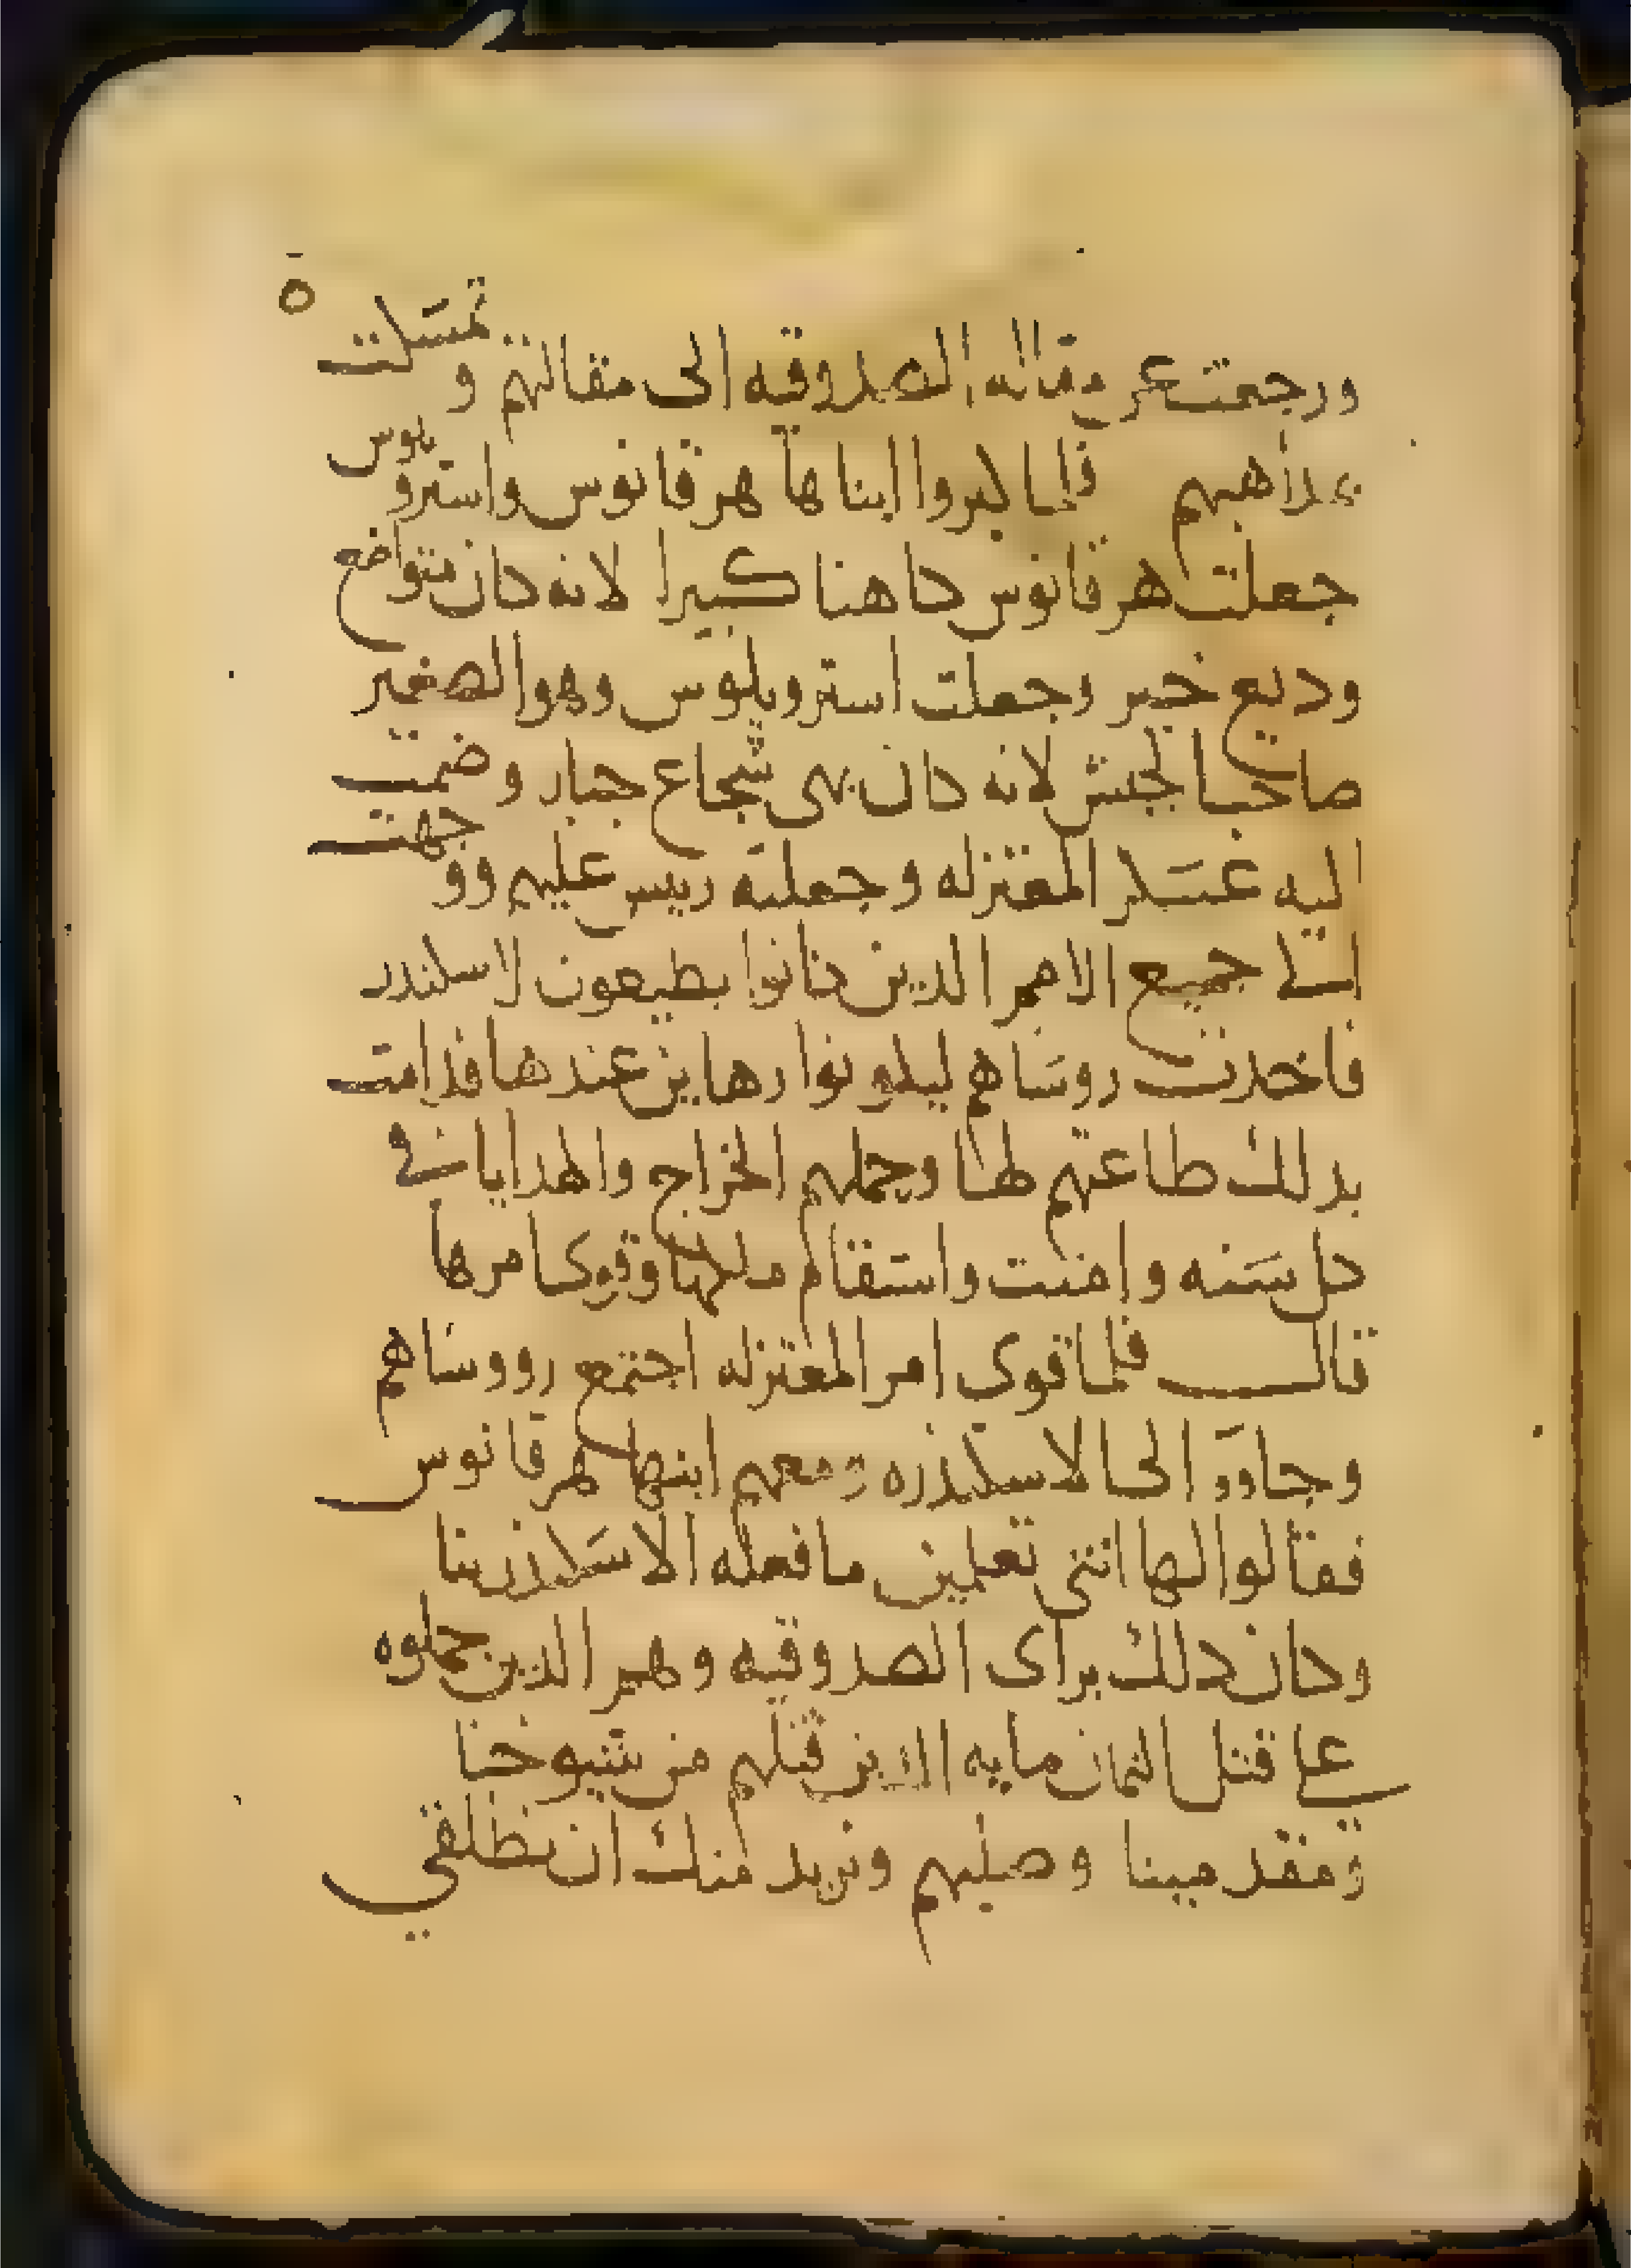 ه
ورجعت عن مقاله الصدوقيه الى مقالتهم وتمسكت
بمداهبهم فلما كبروا ابناها هرقانوس واسترو بوس
جعلت هرقانوس كاهنا كبيرا لانه كان متواضع
وديع خير وجعلت استروبلوس وهو الصغير
صاحب الجيش لانه كان بهى شجاع جبار وضمت
اليه عسكر المعتزله وجعلته رييس عليهم ووجهت
الى جميع الامم الدين كانوا يطيعون لاسكندر
فاخدت روساهم ليكونوا رهاين عندها فدامت
بدلك طاعتهم لها وحملهم الخراج والهدايا في
كل سنه وامنت واستقام ملكها وقوى امرها
قال فلما قوى امر المعتزله اجتمع رووساهم
وجاوو الى الاسكندره ومعهم ابنها هرقانوس
فقالوا لها انتى تعلمين ما فعله الاسكندر بنا
وكان دلك براى الصدوقيه وهم الدين حملوه
على قتل الثمان مايه الدين قتلهم من شيوخنا
ومقدمينا وصلبهم ونريد منك ان تطلقي